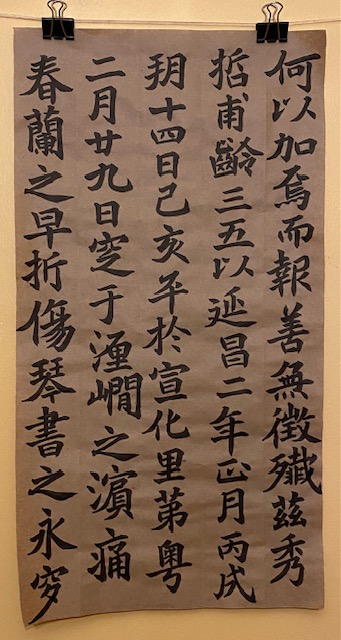 何以加焉而報善無徵殲茲秀
哲甫齡三五以延昌二年正月丙戌
朔十四日己亥卒於宣化里苐粤
二月廿九日窆于瀍澗之濱痛
春蘭之早折傷琴書之永穸